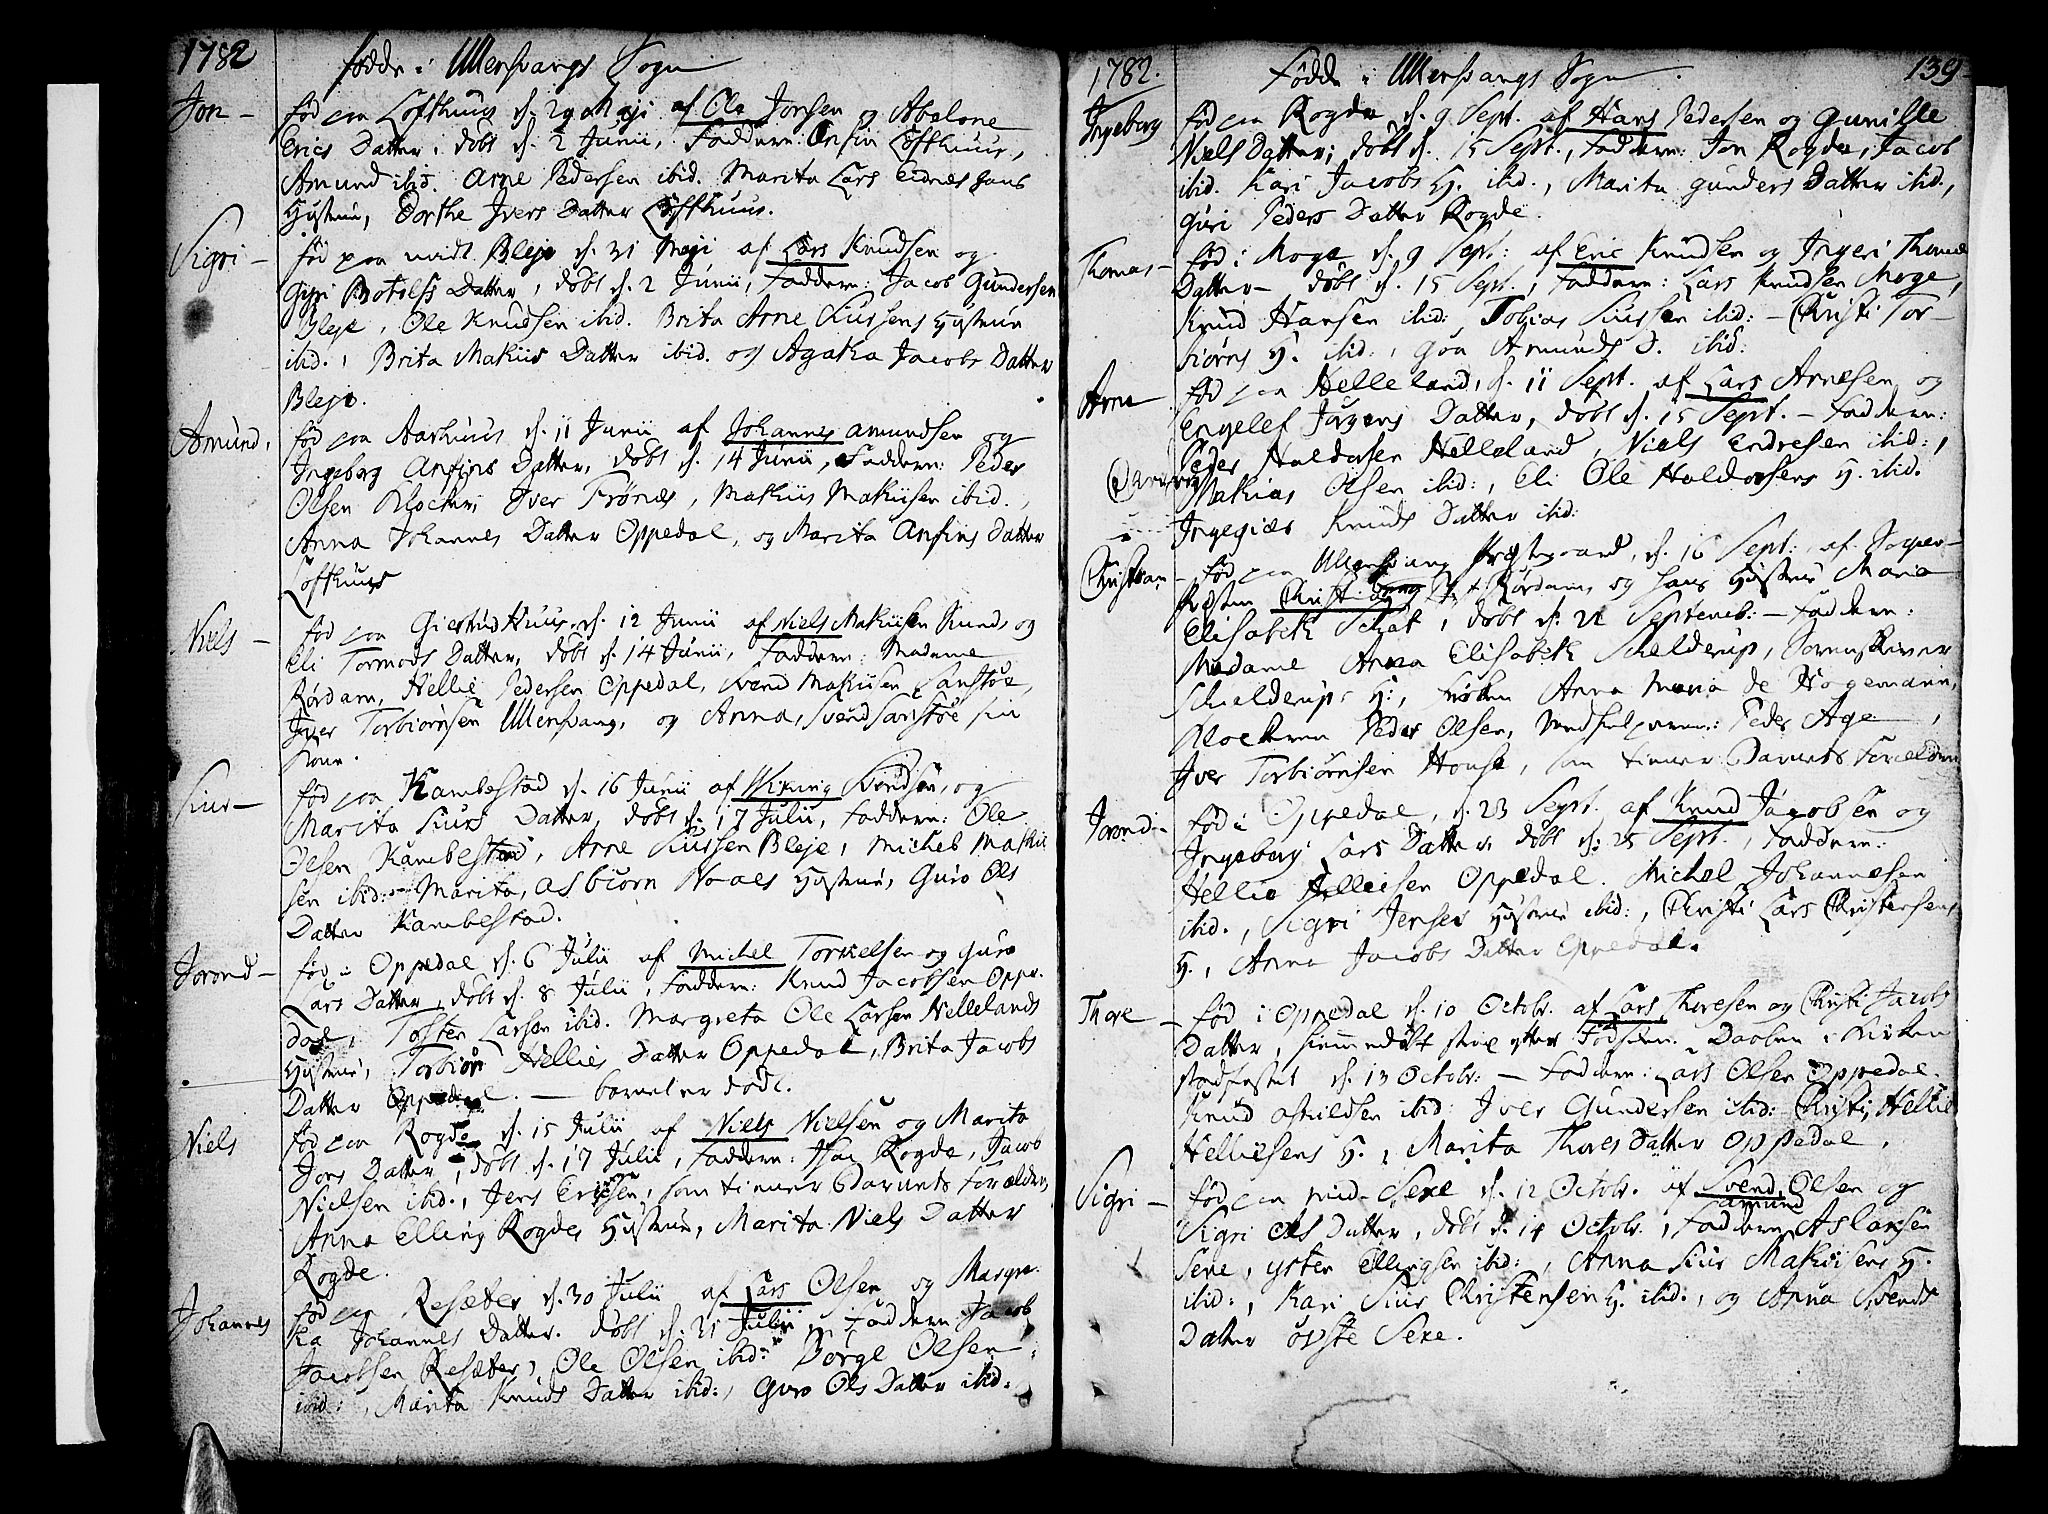 1782
Födde i Ullensvangs Sogn
Jon – fød paa Lofthuus d. 29 Maji af Ola Jonsen og Abelone
Erics Datter, døbt d. 2 Junii, Faddere: Anfin Lofthuus,
Amund ibid. Arne Pedersen ibid. Marita Lars Eidnes hans
Hustrue, Dorthe Ivers Datter Lofthuus.
Sigri – fød paa midt Bleje d. 31 Maji af Lars Knudsen og
Gyri Botolfs Datter, døbt d. 2 Junii, Faddere: Jacob Gundersen
Bleje, Ole Knudsen ibid. Brita Arne Siursens Hustrue
ibid., Brita Makiis Datter ibid. og Agata Jacobs Datter
Bleje.
Amund, fød paa Aarhuus d. 11 Junii af Johannes Amundsen og
Ingeborg Anfins Datter, døbt d. 14 Junii, Faddere: Peder
Olsen Klocker, Iver Frønæs, Makiis Makiisen ibid.,
Anna Johannes Datter Oppedal, og Marita Anfins Datter
Lofthuus
Niels – fød paa Huus, d. 12 Junii af Niels Makiisen Lund og
Eli Tormods Datter, døbt d. 14 Junii, Faddere: Madame
Rørdam, Hellie Pedersen Oppedal, Svend Makiisen Sanstøe,
Iver Torbiørnsen Ullensvang, og Anna, Svend Sanstøe sin
Kone.
Siur – fød paa Kambestad d. 16 Junii af Wiking Svendsen, og
Marita Siurs Datter, døbt d. 17 Julii, Faddere: Ole
Olsen Kambestad, Arne Siursen Bleje, Michel Makii
sen ibid: – Marita, Asbiørn Noaes Hustrue, Guro Ols
Datter Kambestad.
Jorond – fød i Oppedal d. 6 Julii af Michel Torkelsen og Guro
Lars Datter, døbt d. 8 Julii, Faddere: Knud Jacobsen Oppe-
dal, Torsten Larsen ibid. Margreta Ole Larsen Hellelands
Hustrue, Torbiør Hellies Datter Oppedal, Brita Jacobs
Datter Oppedal. – barnet er dödt.
Niels fød paa Rogde d. 15 Julii af Niels Nielsen og Marita
Jons Datter, døbt d. 17 Julii, Faddere: Isac Rogde, Jacob
Nielsen ibid., Jens Ericsen, som tiener Barnets Forældre,
Anna Elling Rogdes Hustrue, Marita Niels Datter
Rogde.
Johannes fød paa Resæter d. 30 Julii af Lars Olsen og Margre-
ta Johannes Datter. døbt d. 31 Julii, Faddere: Jacob
Jacobsen Resæter, Ole Olsen ibid: Børge Olsen
ibid:, Marita Knuds Datter ibid:, Guro Ols Datter ibid:
1782.
Födde i Ullensvangs Sogn.
139
Ingeborg fød paa Rogde d. 9 Sept. af Hans Pedersen og Gunille
Niels Datter; døbt d. 15 Sept., Faddere: Jon Rogde, Jacob
ibid. Kari Jacobs H. ibid., Marita Gunders Datter ibid.,
Guri Peders Datter Rogde.
Thomas – fød i Moge d. 9 Sept: af Eric Knudsen og Ingeri Thomæ
Datter – døbt d. 15 Sept., Faddere: Lars Knudsen Moge,
Knud Hansen ibid: Tobias Siursen ibid: – Christi Tor-
biørns H. ibid:, Goa Amunds D. ibid:
Arne fød paa Helleland, d. 11 Sept. af Lars Arnesen og
Engelef Jørgens Datter, døbt d. 15 Sept. – Faddere:
Peder Haldorsen Helleland, Niels Endresen ibid:,
Makias Olsen ibid:, Eli Ole Haldorsens H. ibid.
Ingegiær Knuds Datter ibid:
Christian – fød paa Ullensvang Præstegaard, d. 16 Sept:, af Sogne-
Præsten Christ: Rørdam, og hans Hustrue Maria
Elisabeth Schat, døbt d. 22 Septemb: – Faddere:
Madame Anna Elisabeth Schelderup, Sorenskriver
Schielderups H:, Frøken Anna Maria de Hogemann,
Klockeren Peder Olsen, Medhielperen: Peder Age,
Iver Torbiørnsen House, som tiener Barnets Forældre
Jorond – fød i Oppedal, d. 23 Sept. af Knud Jacobsen og
Ingeborg Lars Datter døbt d: 25 Sept., Faddere:
Hellie Helliesen Oppedal. Michel Johannesen
ibid., Sigri Jensens Hustrue ibid:, Christi Lars Christensens
H., Anna Jacobs Datter Oppedal.
Thore – fød i Oppedal d. 10 Octobr. af Lars Thoresen og Christi Jacobs
Datter, hiemmedøbt strax efter Fødselen. Daaben i Kirken
stadfæstet d. 13 Octobr: – Faddere: Lars Olsen Oppedal.
Knud Askildsen ibid: Iver Gundersen ibid: Christi Hellie
Helliesens H., Marita Thores Datter Oppedal,
Sigri – fød paa mid- Sexe d. 12 Octobr. af Svend Olsen og
Sigri Ols Datter, døbt d. 14 Octobr., Faddere: Amund Aslaksen
Sexe, Ysten Ellingsen ibid:, Anna Siur Makiisens H.
ibid:, Kari Siur Christensen H. ibid:, og Anna Svends
Datter øvste Sexe.